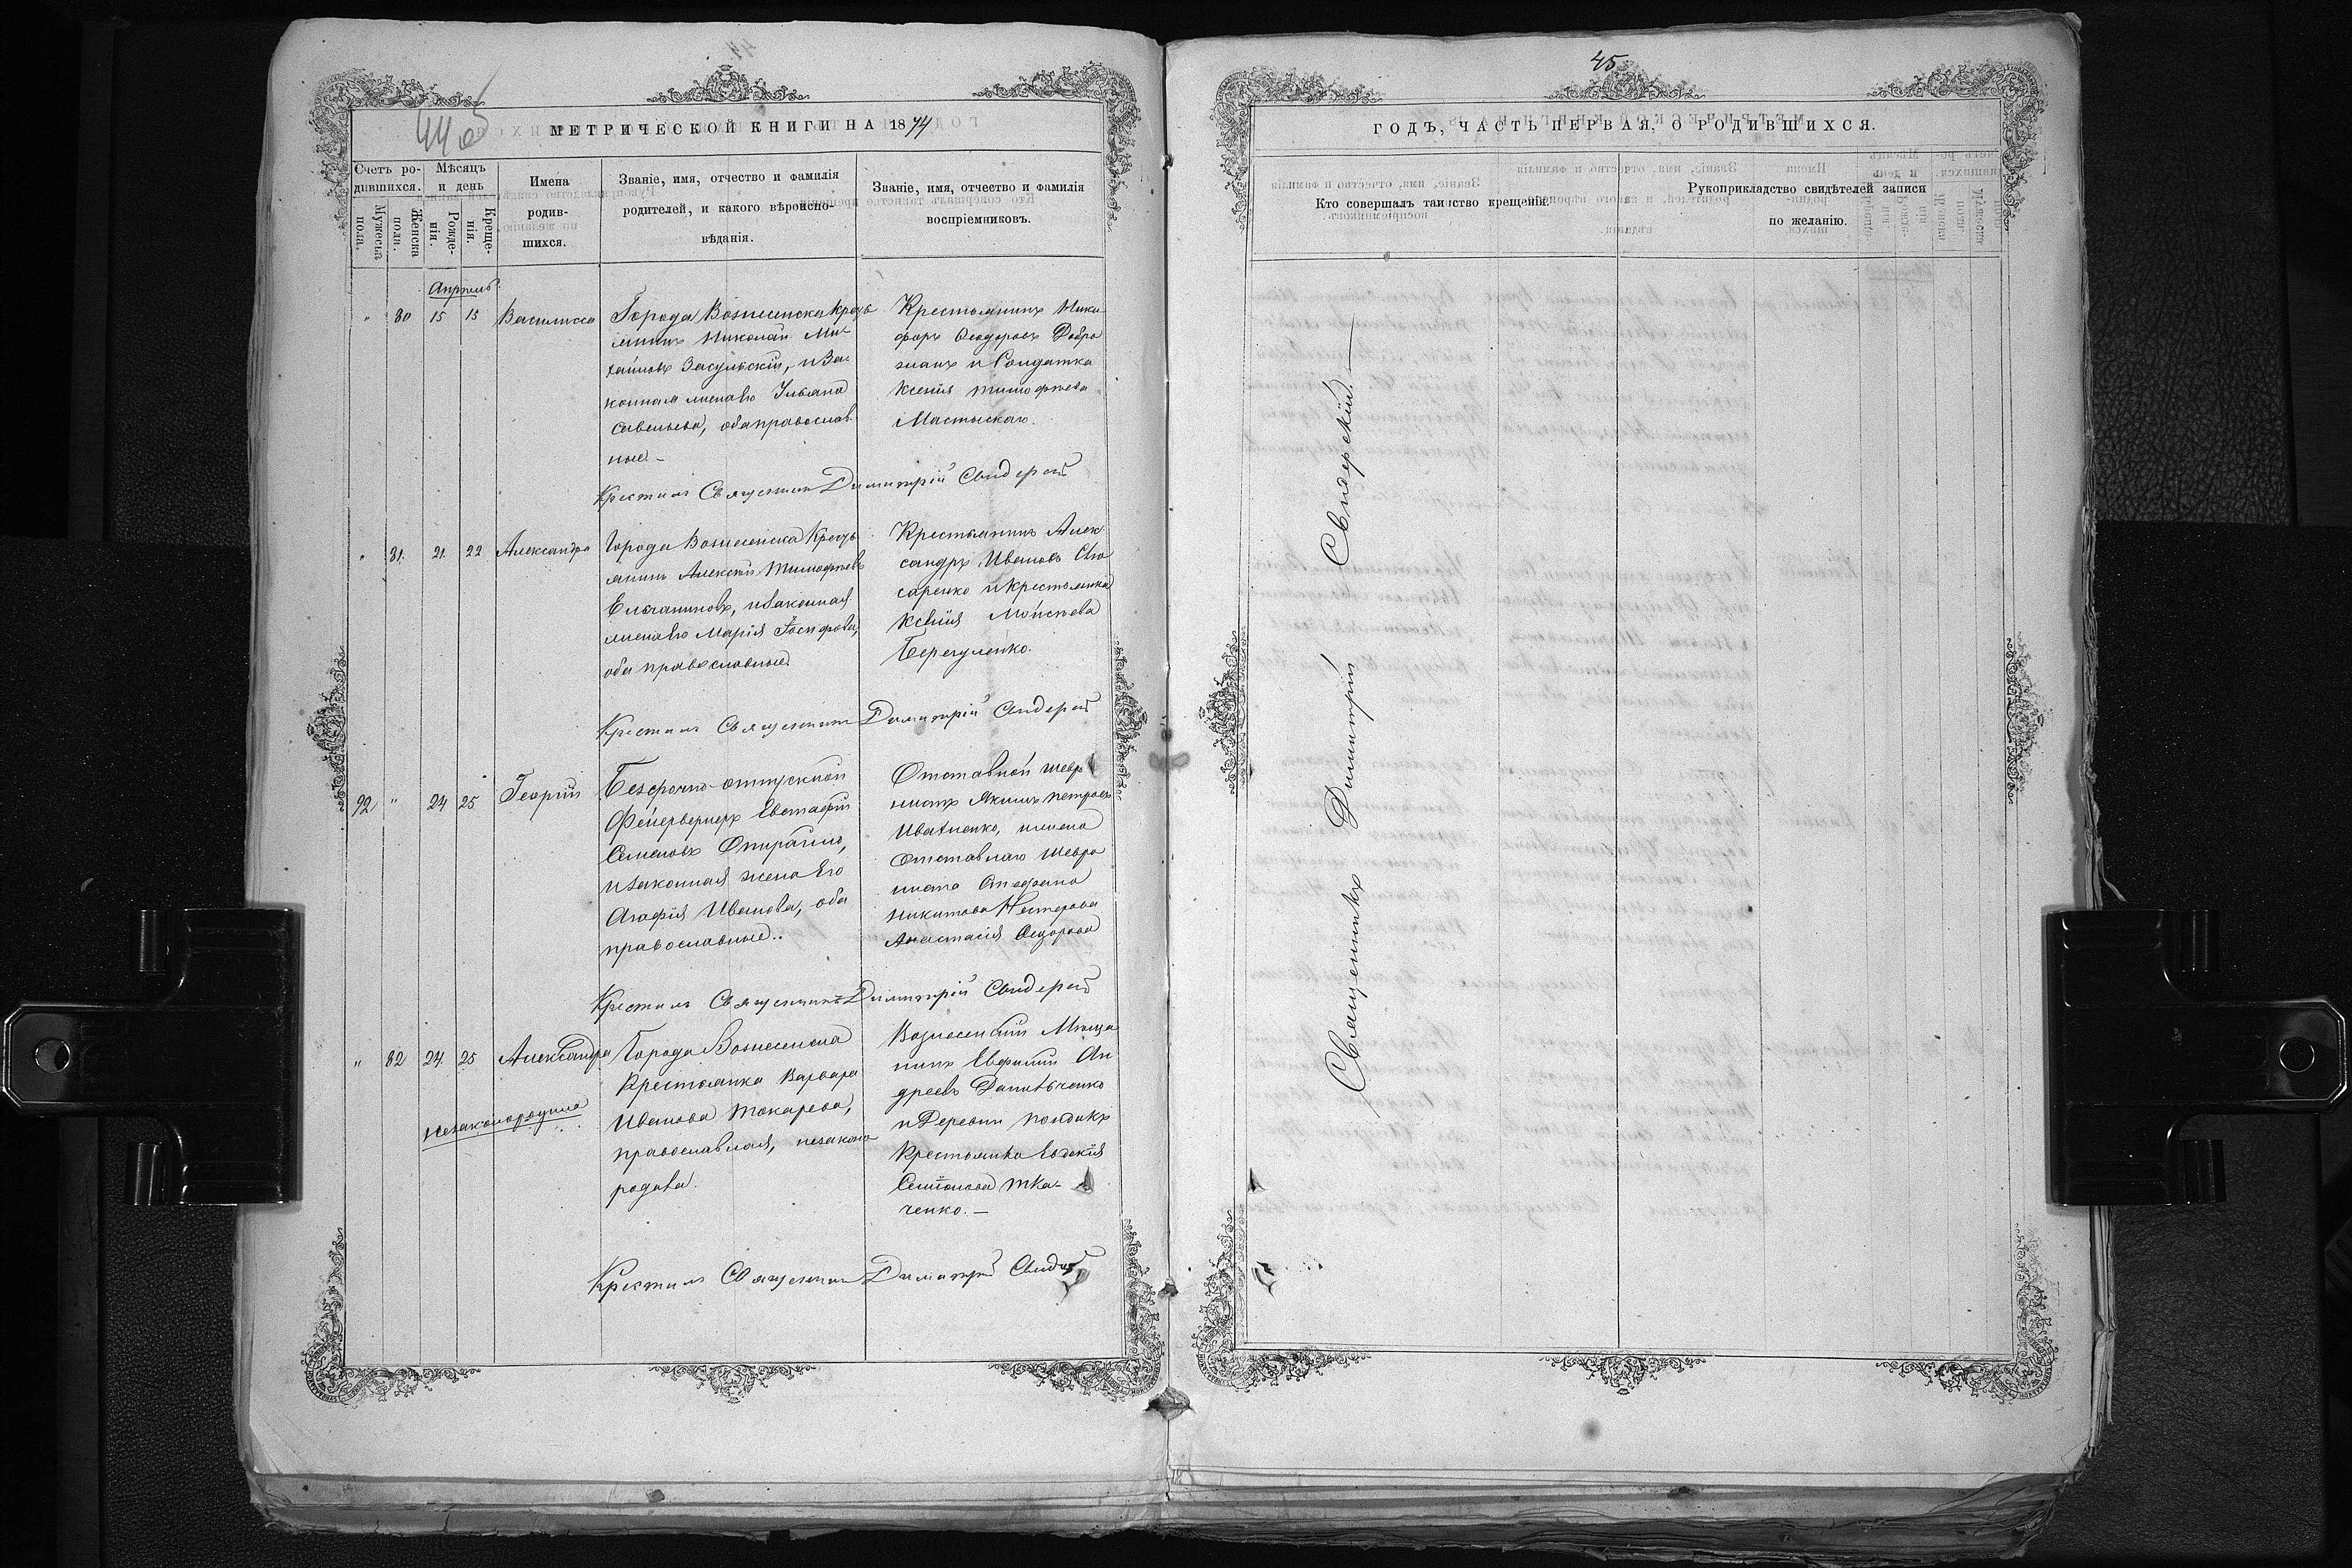 44 об
МЕТРИЧЕСКОЙ КНИГИ НА 1874
Счетъ ро-
дившихся.
Мужеска
пола.
Женска
пола.
Мѣсяцъ
и день
Рожде-
нія.
Креще-
нія.
Имена
родив-
шихся.
Званіе, имя, отчество и фамилія
родителей, и какого вѣроиспо-
вѣданія.
Званіе, имя, отчество и фамилія
воспріемниковъ.
Апрель
" 80 15 15 Василисса
Города Вознесенска Кресть
янинъ Николай Ми-
хайловъ Засульскій, и За-
конная жена его Ульяна
Савельева, оба православ
ные.-
Крестьянинъ Ники
форъ Ѳеодоровъ Добро
и Солдатка
Ксенія Тимофѣева
Крестилъ Священникъ Димитрій Свидерскій
" 81. 21. 22 Александра
Города Вознесенска Кресть
янинъ Алексѣй Тимофѣевъ
Елчаниновъ, и законная
жена его Марія Іосифова,
оба православные.
Крестьянинъ Алек
сандръ Ивановъ Слю
саренко и крестьянка
Ксенія Мойсѣева
Крестилъ Священникъ Димитрій Свидерскій
92 " 24 25 Георгій
Безсрочно-отпускной
Фейерверкеръ Евстафій
Семеновъ
и законная жена его
Агафія Иванова, оба
православные..
Отставной шевро
нистъ Якимъ Петровъ
Иватченко, и жена
отставнаго шевро
ниста Стефана
Никитова Нестерова
Анастасія Ѳедорова
Крестилъ Священникъ Димитрій Свидерскій
" 82 24 25 Александра
незаконорождена
Города Вознесенска
Крестьянка Варвара
Иванова Токарева,
православная, незаконо
родила.
Вознесенскій Мѣща
нинъ Евфимій Ан
дреевъ Данильченко
и Деревни
Крестьянка Евдокія
Семіонова Тка-
ченко.-
Крестилъ Священникъ Димитрій Свидер
45
ГОДЪ, ЧАСТЬ ПЕРВАЯ, О РОДИВШИХСЯ.
Кто совершалъ таинство крещенія.
Рукоприкладство свидѣтелей записи
по желанію.
Священникъ Димитрій Свидерскій.